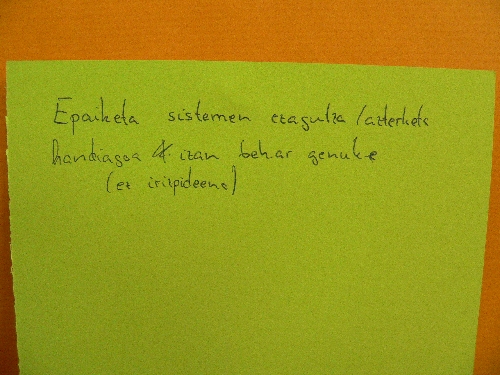 Epaiketa sistemen ezagutza/azterketa
handiagoa izan behar genuke
(ez irizpideena)